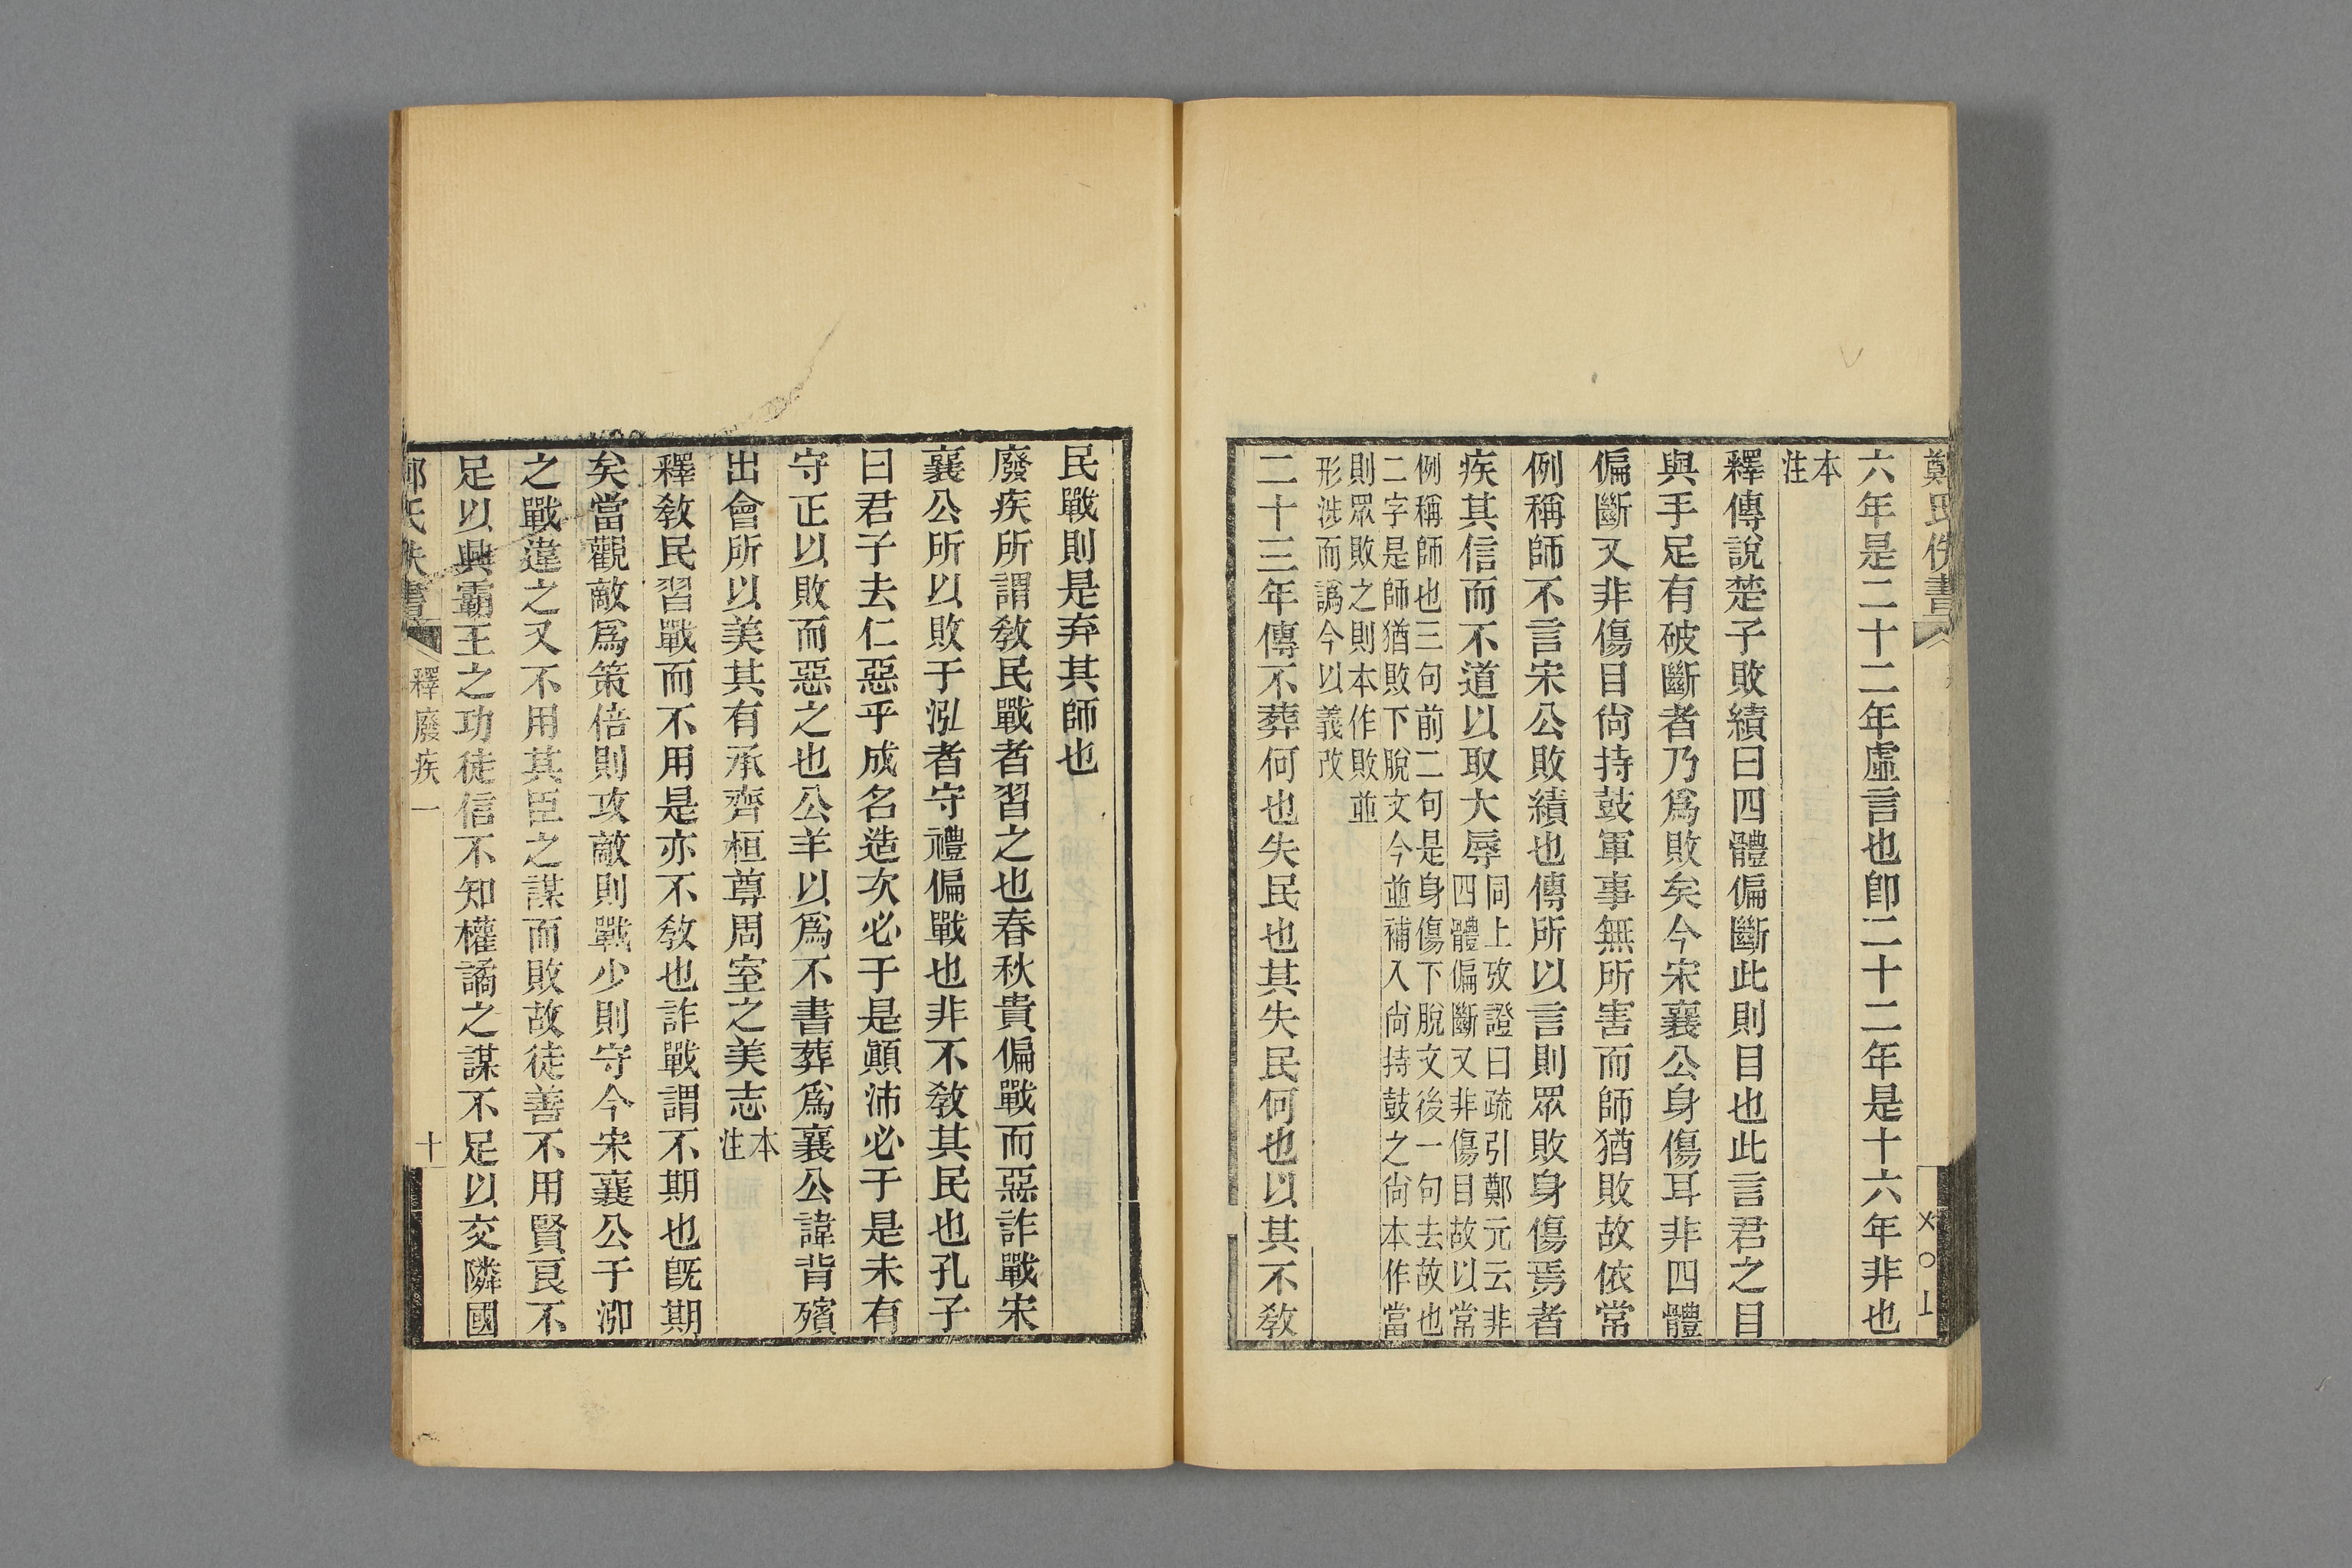 鄭氏佚書
六年是二十二年虛言也卽二十二年是十六年非也
本
注
釋傳說楚子敗績曰四體偏斷此則目也此言君之目
與手足有破斷者乃爲敗矣今宋襄公身傷耳非四體
偏斷又非傷目尙持鼓軍事無所害而師猶敗故依常
例稱師不言宋公敗績也傳所以言則眾敗身傷焉者
疾其信而不道以取大辱
同上攷證曰疏引鄭元云非
四體偏斷又非傷目故以常
例稱師也三句前二句是身傷下脫文後一句去故也
二字是師猶敗下脫文今並補入尙持鼓之尙本作當
則眾敗之則本作敗並
形涉而譌今以義改
二十三年傳不葬何也失民也其失民何也以其不敎
民戰則是弃其師也
廢疾所謂敎民戰者習之也春秋貴偏戰而惡詐戰宋
襄公所以敗于泓者守禮偏戰也非不敎其民也孔子
曰君子去仁惡乎成名造次必于是顚沛必于是未有
守正以敗而惡之也公羊以爲不書葬爲襄公諱背殯
出會所以美其有承齊桓尊周室之美志
本
注
釋敎民習戰而不用是亦不敎也詐戰謂不期也旣期
矣當觀敵爲策倍則攻敵則戰少則守今宋襄公于泓
之戰違之又不用其臣之謀而敗故徒善不用賢良不
足以興霸王之功徒信不知權譎之謀不足以交隣國
鄭氏佚書
釋廢疾一
十